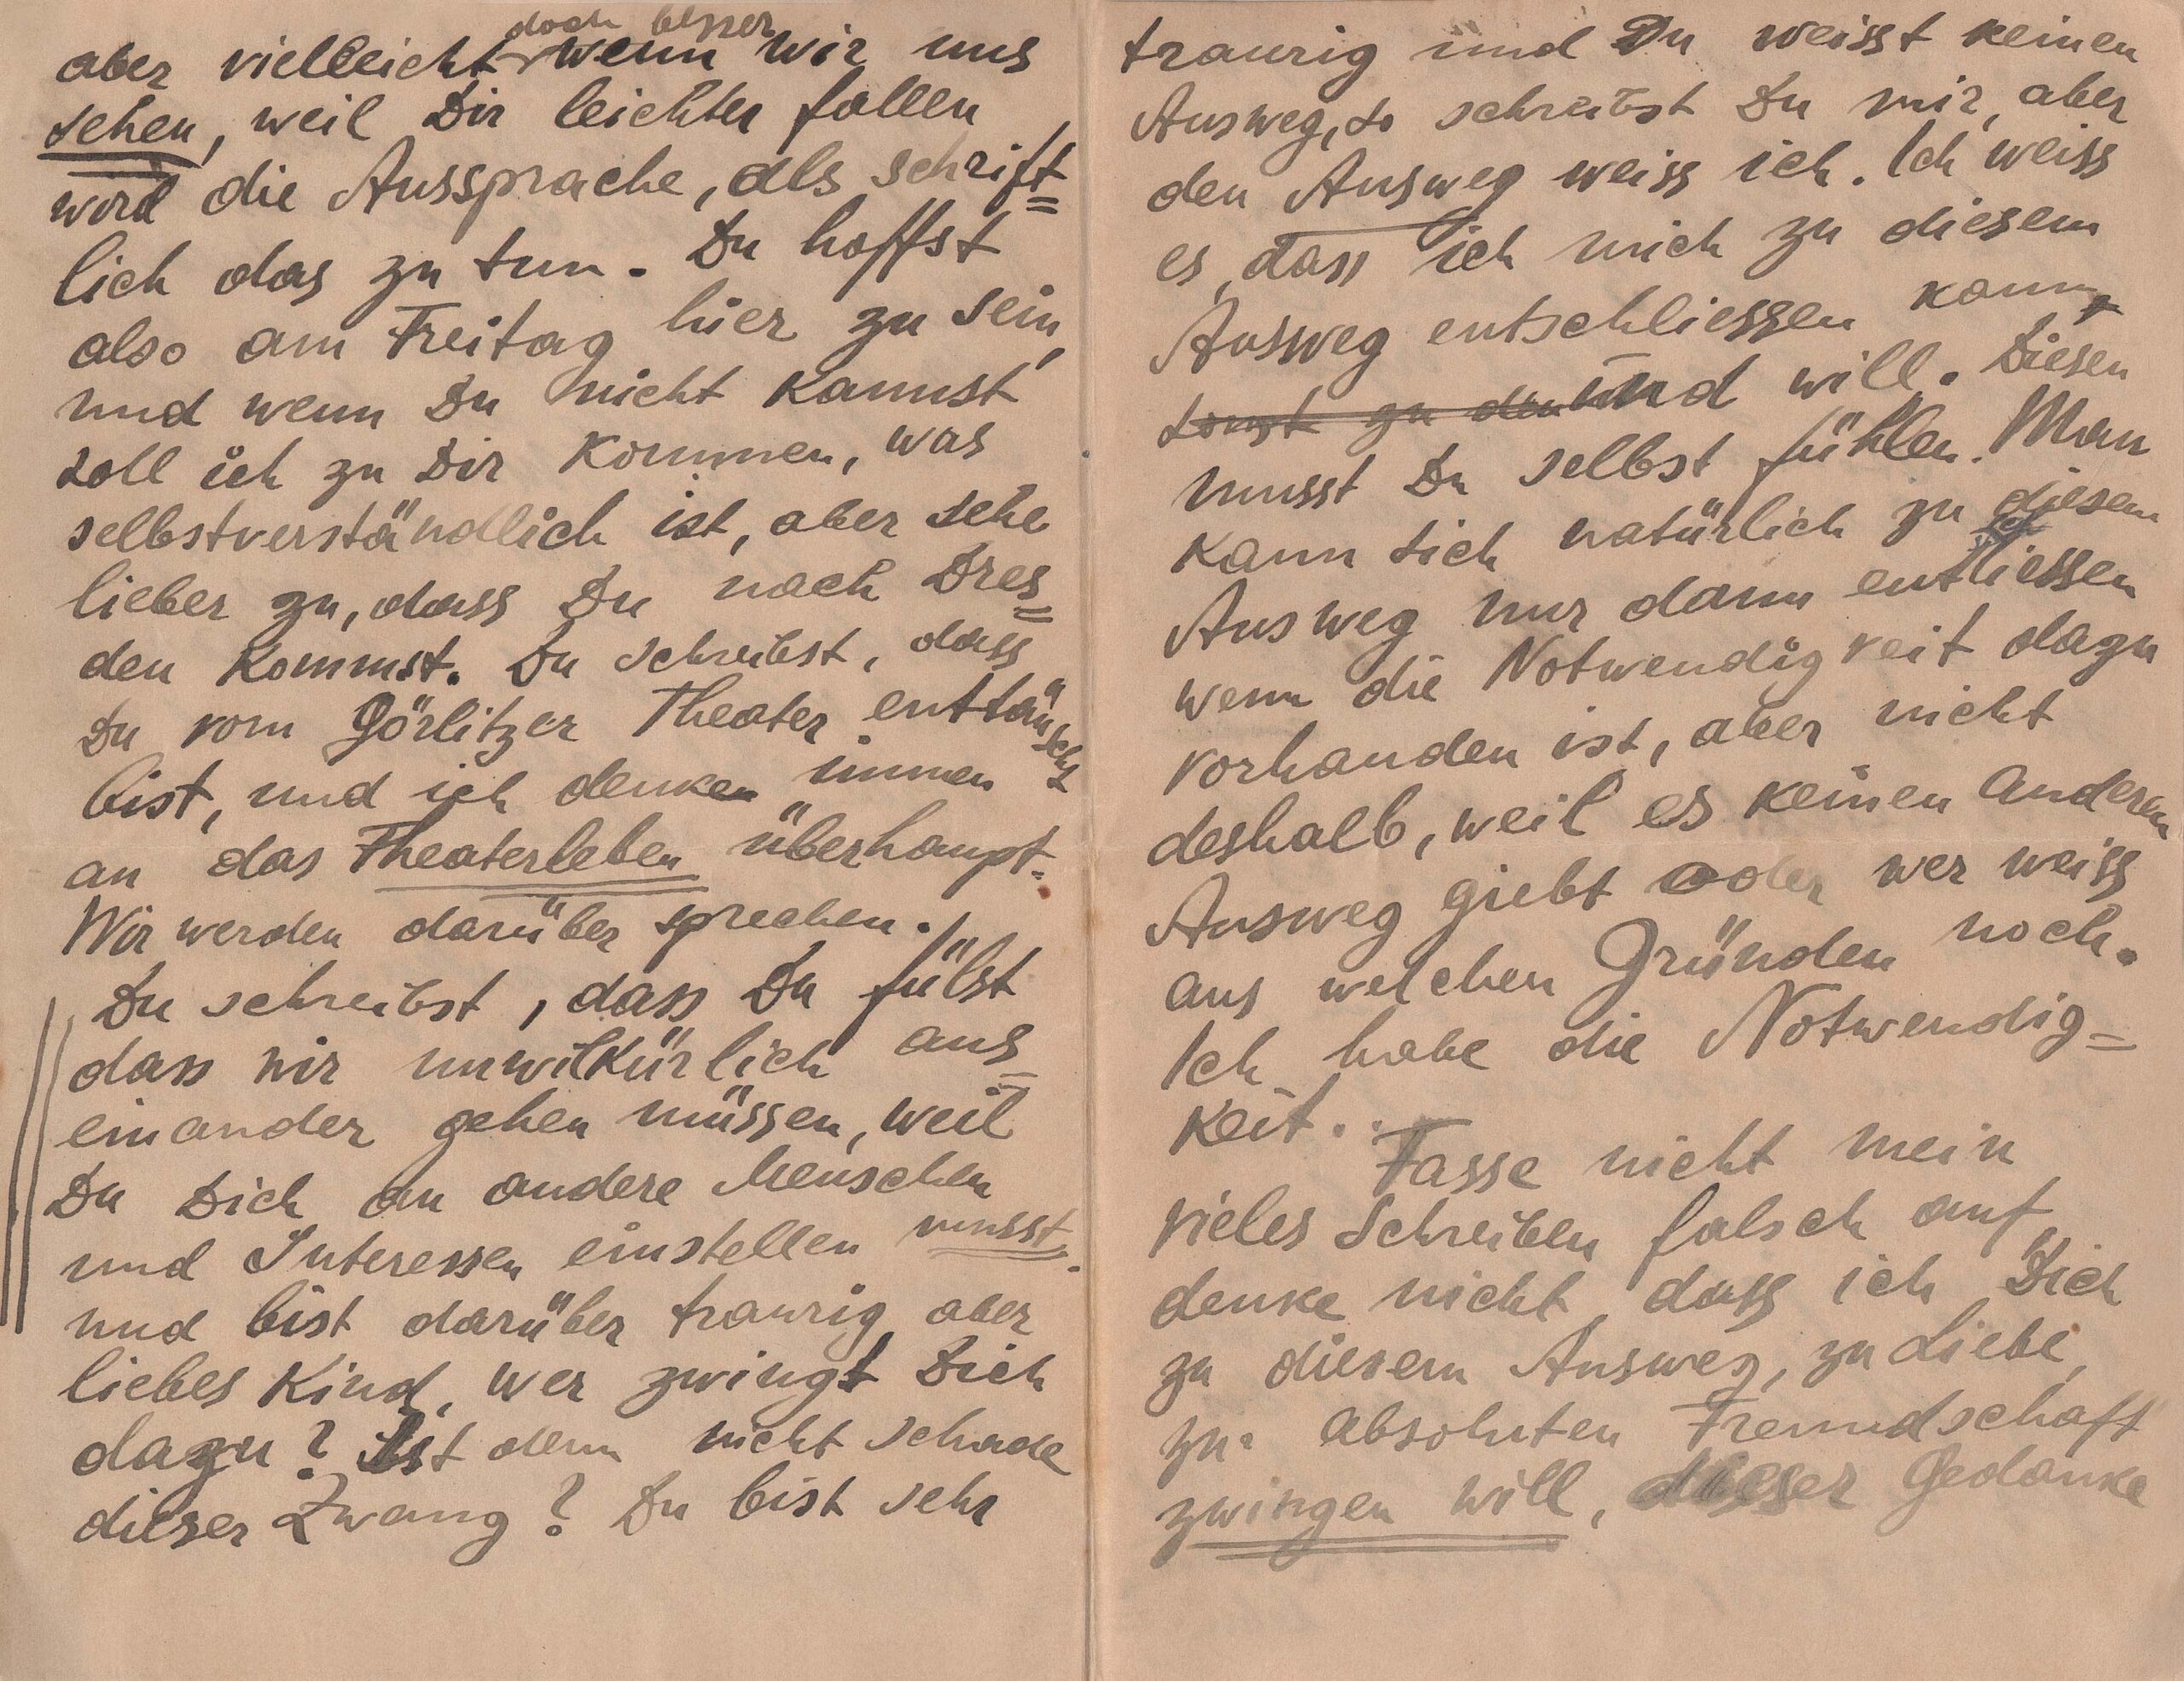 doch besser
aber vielleicht wenn wir uns
sehen, weil Dir leichter fallen
wird die Aussprache, als schrift=
lich das zu tun. Du hoffst
also am Freitag hier zu sein,
und wenn Du nicht kannst
soll ich zu Dir kommen, was
selbstverständlich ist, aber sehe
lieber zu, dass Du nach Dres=
den kommst. Du schreibst, dass
Du vom Görlitzer Theater enttäuscht
bist, und ich denke immer
an das Theaterleben überhaupt.
Wir werden darüber sprechen.
Du schreibst, dass Du fülst
dass wir unwilkürlich aus=
einander gehen müssen, weil
Du Dich an andere Menschen
und Interessen einstellen musst.
und bist darüber traurig, aber
liebes Kind, wer zwingt Dich
dazu? Ist denn nicht schade
dieser Zwang? Du bist sehr
traurig und Du weisst keinen
Ausweg, so schreibst Du mir, aber
den Ausweg weiss ich. Ich weiss
es, dass ich mich zu diesem
Ausweg entschliessen kann,
und will. Diesen
musst Du selbst fühlen. Man
kann sich natürlich zu diesem
Ausweg nur dann entliessen
wenn die Notwendigkeit dazu
vorhanden ist, aber nicht
deshalb, weil es keinen anderen
Ausweg giebt oder wer weiss
aus welchen Gründen noch.
Ich habe die Notwendig=
keit..
Fasse nicht mein
vieles Schreiben falsch auf,
denke nicht, dass ich Dich
zu diesem Ausweg, zu Liebe,
zu absoluten Freundschaft
zwingen will, dieser Gedanke